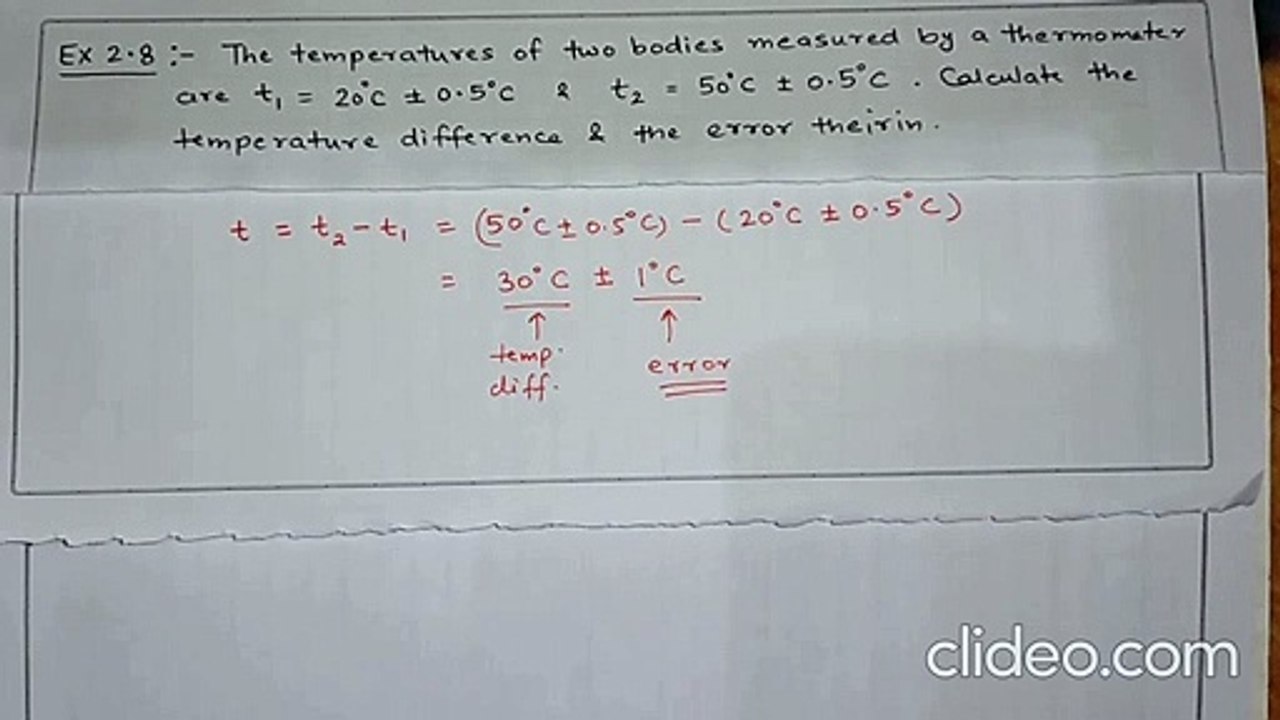 Ex 2.8 :- The temperatures of two bodies measured by a thermometer
are t₁ = 20°C ± 0.5°C & t₂ = 50°C ± 0.5°C. Calculate the
temperature difference & the error theirin.
t = t₂ - t₁ = (50°C ± 0.5°C) - (20°C ± 0.5°C)
= 30°C ± 1°C
↑ ↑
temp. error
diff.
clideo.com